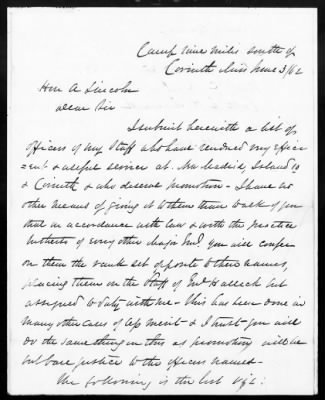 Camp nine miles south of
Corinth Miss June 3/62
Hon A Lincoln
Dear Sir
I submit herewith a list of
officers of my Staff who have rendered very effici-
ent & useful service at New Madrid, Island 10
& Corinth & who deserve promotion - I have no
other means of giving it to them than to ask of you
that in accordance with law & with the practice
hitherto of every other Major Genl, you will confer
on them the rank set opposite to their names,
placing them on the Staff of Genl Halleck but
assigned to duty with me - This has been done in
many other cases of less merit - & I trust you will
do the same thing in this as promotion will be
but bare justice to the officers named -
The following is the list viz: